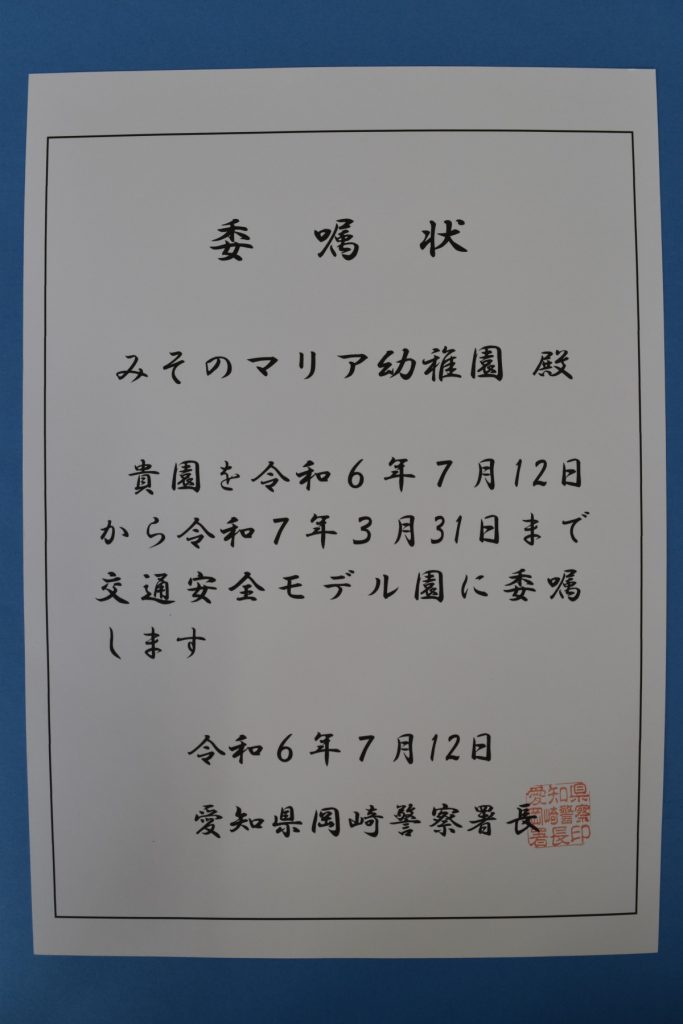 委嘱状
みそのマリア幼稚園 殿
貴園を令和6年7月12日
から令和7年3月31日まで
交通安全モデル園に委嘱
します
令和6年7月12日
愛知県岡崎警察署長
愛知県
岡崎警察
署長印